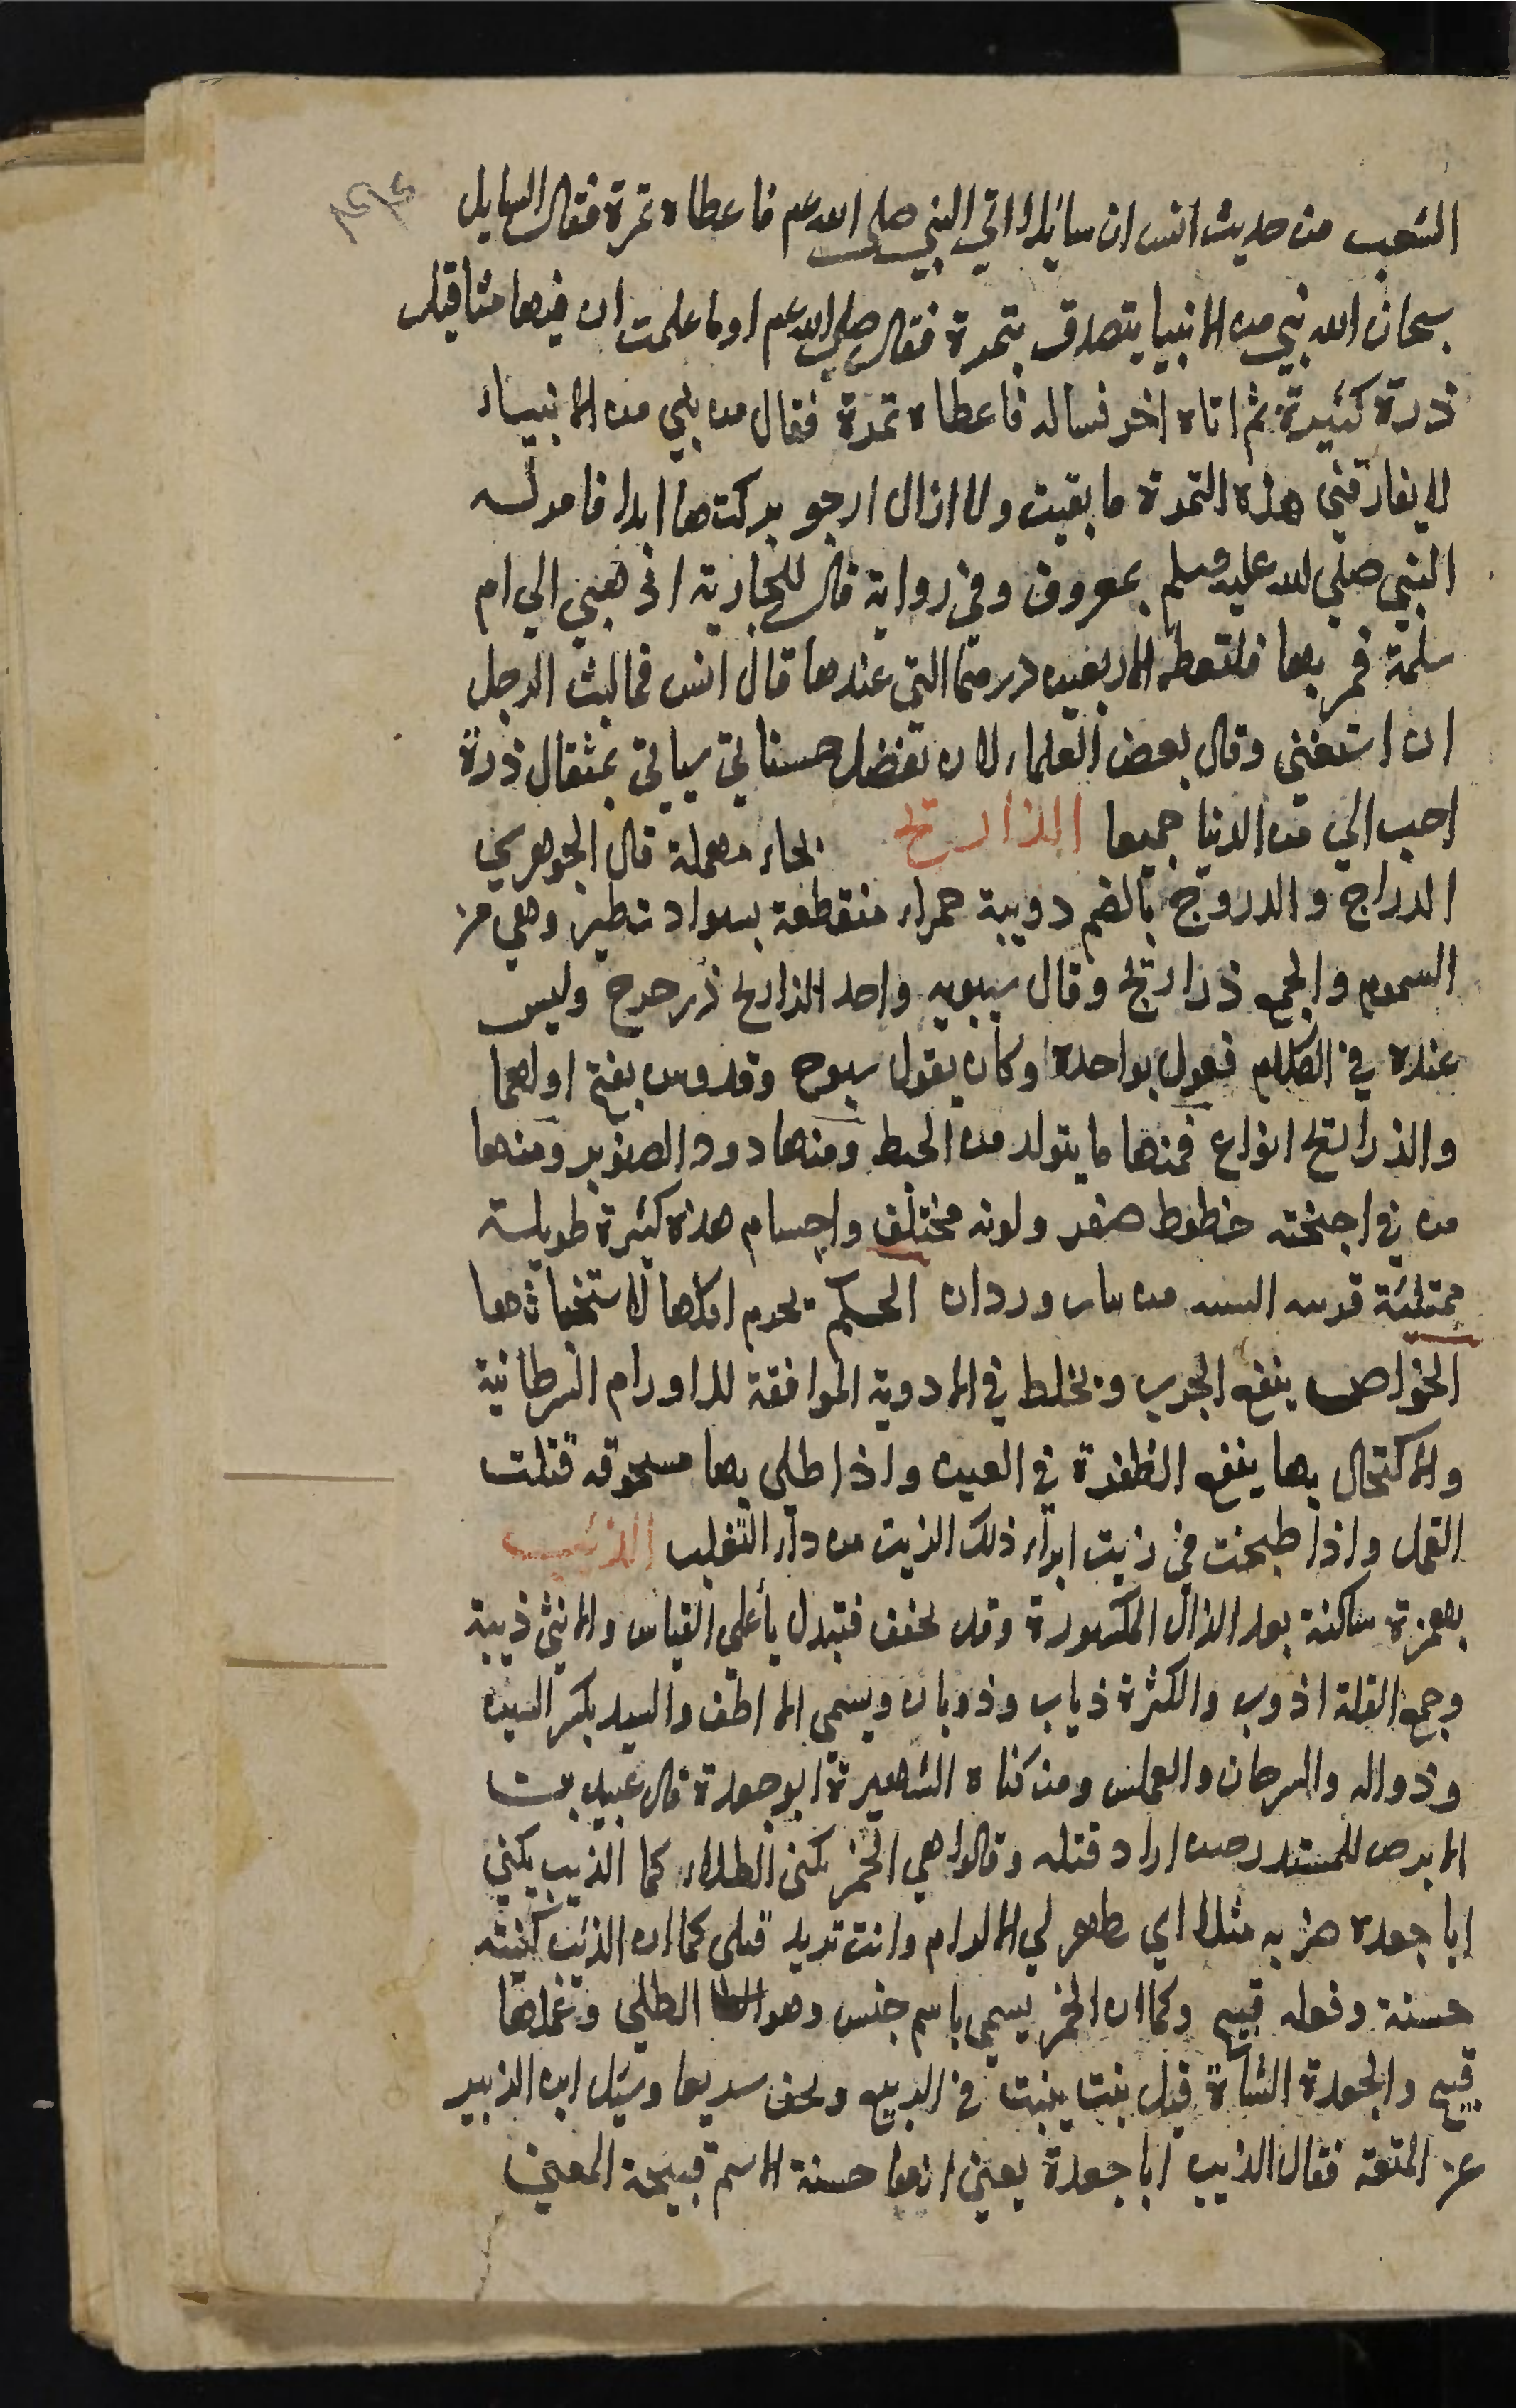 الشعب من حديث انس ان سائلا اتي النبي صلى الله عم فاعطاه تمرة فقال السايل
سبحان الله نبي من الانبيا يتصدق بتمرة فقال صلي الله عم اوما علمت ان فيها مثاقيل
ذرة كثيرة ثم اتاه اخر فساله فاعطاه تمرة فقال من نبي من الانبياء
لا يفارقني هذه التمرة ما بقيت ولا ازال ارجو بركتها ابدا فامر له
النبي صلي الله عليه وسلم بمعروف وفي رواية قال للجارية اذهبي الي ام
سلمة فمريها فلتعطه الاربعين درهما التي عندها قال انس فما لبث الرجل
ان استغني وقال بعض العلماء لان تفضل حسناتي سياتي بمثقال ذرة
احب الي من الدنيا جميعا الذراريح بحاء مهملة قال الجوهري
الذراح والذروح بالضم دويبة حمراء منقطعة بسواد تطير وهي من
السموم والجمع ذراريح وقال سيبويه واحد الذراريح ذرحرح وليس
عنده في الكلام فعول بواحدة وكان يقول سبوح وقدوس بفتح اولهما
والذراريح انواع فمنها ما يتولد من الحنط ومنها دود الصنوبر ومنها
من في اجنحته خطوط صفر ولونه مختلف واجسام هذه كثيرة طويلة
ممتلئة قريبه الشبه من بنات وردان الحكم يحرم اكلها لاستخباثها
الخواص ينفع الجرب ويخلط في الادوية الموافقة للاورام السرطانية
والاكتحال بها ينفع الظفرة في العين واذا طلي بها مسحوقه قتلت
القمل واذا طبخت في زيت ابراء ذلك الزيت من داء الثعلب الذئب
بهمزة ساكنة بعد الذال المكسورة وقد يخفف فتبدل يأعلي القياس والانثي ذيبة
وجمع القلة اذوب والكثرة ذياب وذوبان ويسمي الاطف والسيد بكسر السين
وذواله والسرحان والعملس ومن كناه الشهيرة ابو جعدة قال عبيد بن
الابرص للمنذر حين اراد قتله وقالوا هي الخمر يكني الطلاء كما الذيب يكني
ابا جعدة ضربه مثلا اي تظهر لي الاكرام وانت تريد قتلي كما ان الذئب كنيته
حسنة وفعله قبيح وكما ان الخمر يسمي باسم جنس وهو الطلي وفعلها
قبيح والجعدة الشاة قيل نبت ينبت في الربيع ويجف سريعا وسئل ابن الزبير
عن المتعة فقال الذيب ابا جعدة يعني انها حسنة الاسم قبيحة المعني